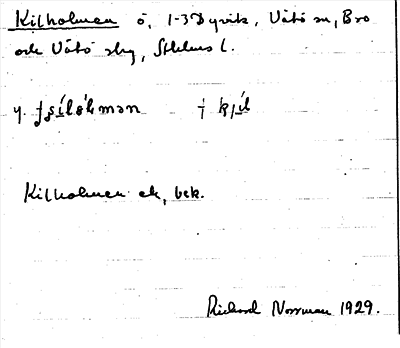 Kilholmen ö, 1-3 Dyvik, Vätö sn, Bro
och Vätö skg, Sthlms l.
Kilholmen ek, bek.
Richard Norrman 1929.